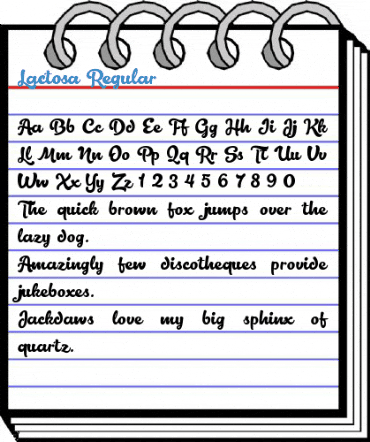 Lactosa Regular
Aa Bb Cc Dd Ee Ff Gg Hh Ii Jj Kk
Ll Mm Nn Oo Pp Qq Rr Ss Tt Uu Vv
Ww Xx Yy Zz 1 2 3 4 5 6 7 8 9 0
The quick brown fox jumps over the
lazy dog.
Amazingly few discotheques provide
jukeboxes.
Jackdaws love my big sphinx of
quartz.